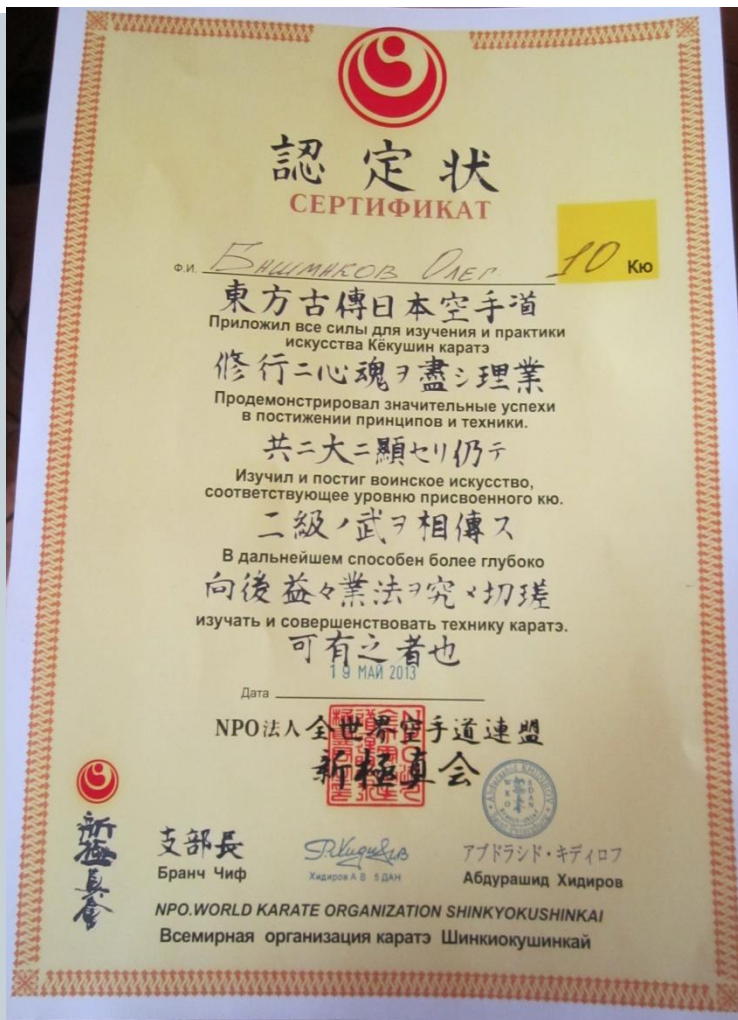 認定状
СЕРТИФИКАТ
Ф.И. Башмаков Олег 10 Кю
東方古傳日本空手道
Приложил все силы для изучения и практики
искусства Кёкушин каратэ
修行ニ心魂ヲ盡シ理業
Продемонстрировал значительные успехи
в постижении принципов и техники.
共ニ大ニ顯セリ仍テ
Изучил и постиг воинское искусство,
соответствующее уровню присвоенного кю.
二級ノ武ヲ相傳ス
В дальнейшем способен более глубоко
向後益々業法ヲ究メ切瑳
изучать и совершенствовать технику каратэ.
可有之者也
19 МАЙ 2013
Дата
NPO法人 全世界空手道連盟
新極真会
新極真會
支部長
Бранч Чиф
Хидиров А В 5 ДАН
アブドラシド・キディロフ
Абдурашид Хидиров
NPO.WORLD KARATE ORGANIZATION SHINKYOKUSHINKAI
Всемирная организация каратэ Шинкиокушинкай